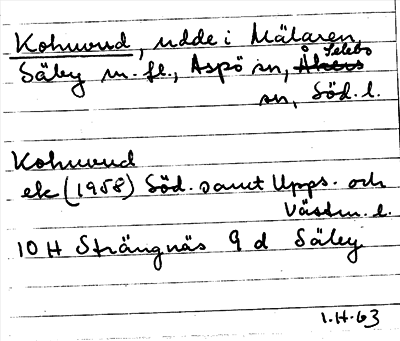 Kohuvud, udde i Mälaren,
Säby m. fl., Aspö sn, Åkers Selebo
sn, Söd. l.
Kohuvud
ek (1958) Söd. samt Upps. och
Västm. l.
10 H Strängnäs 9 d Säby
1.H.63